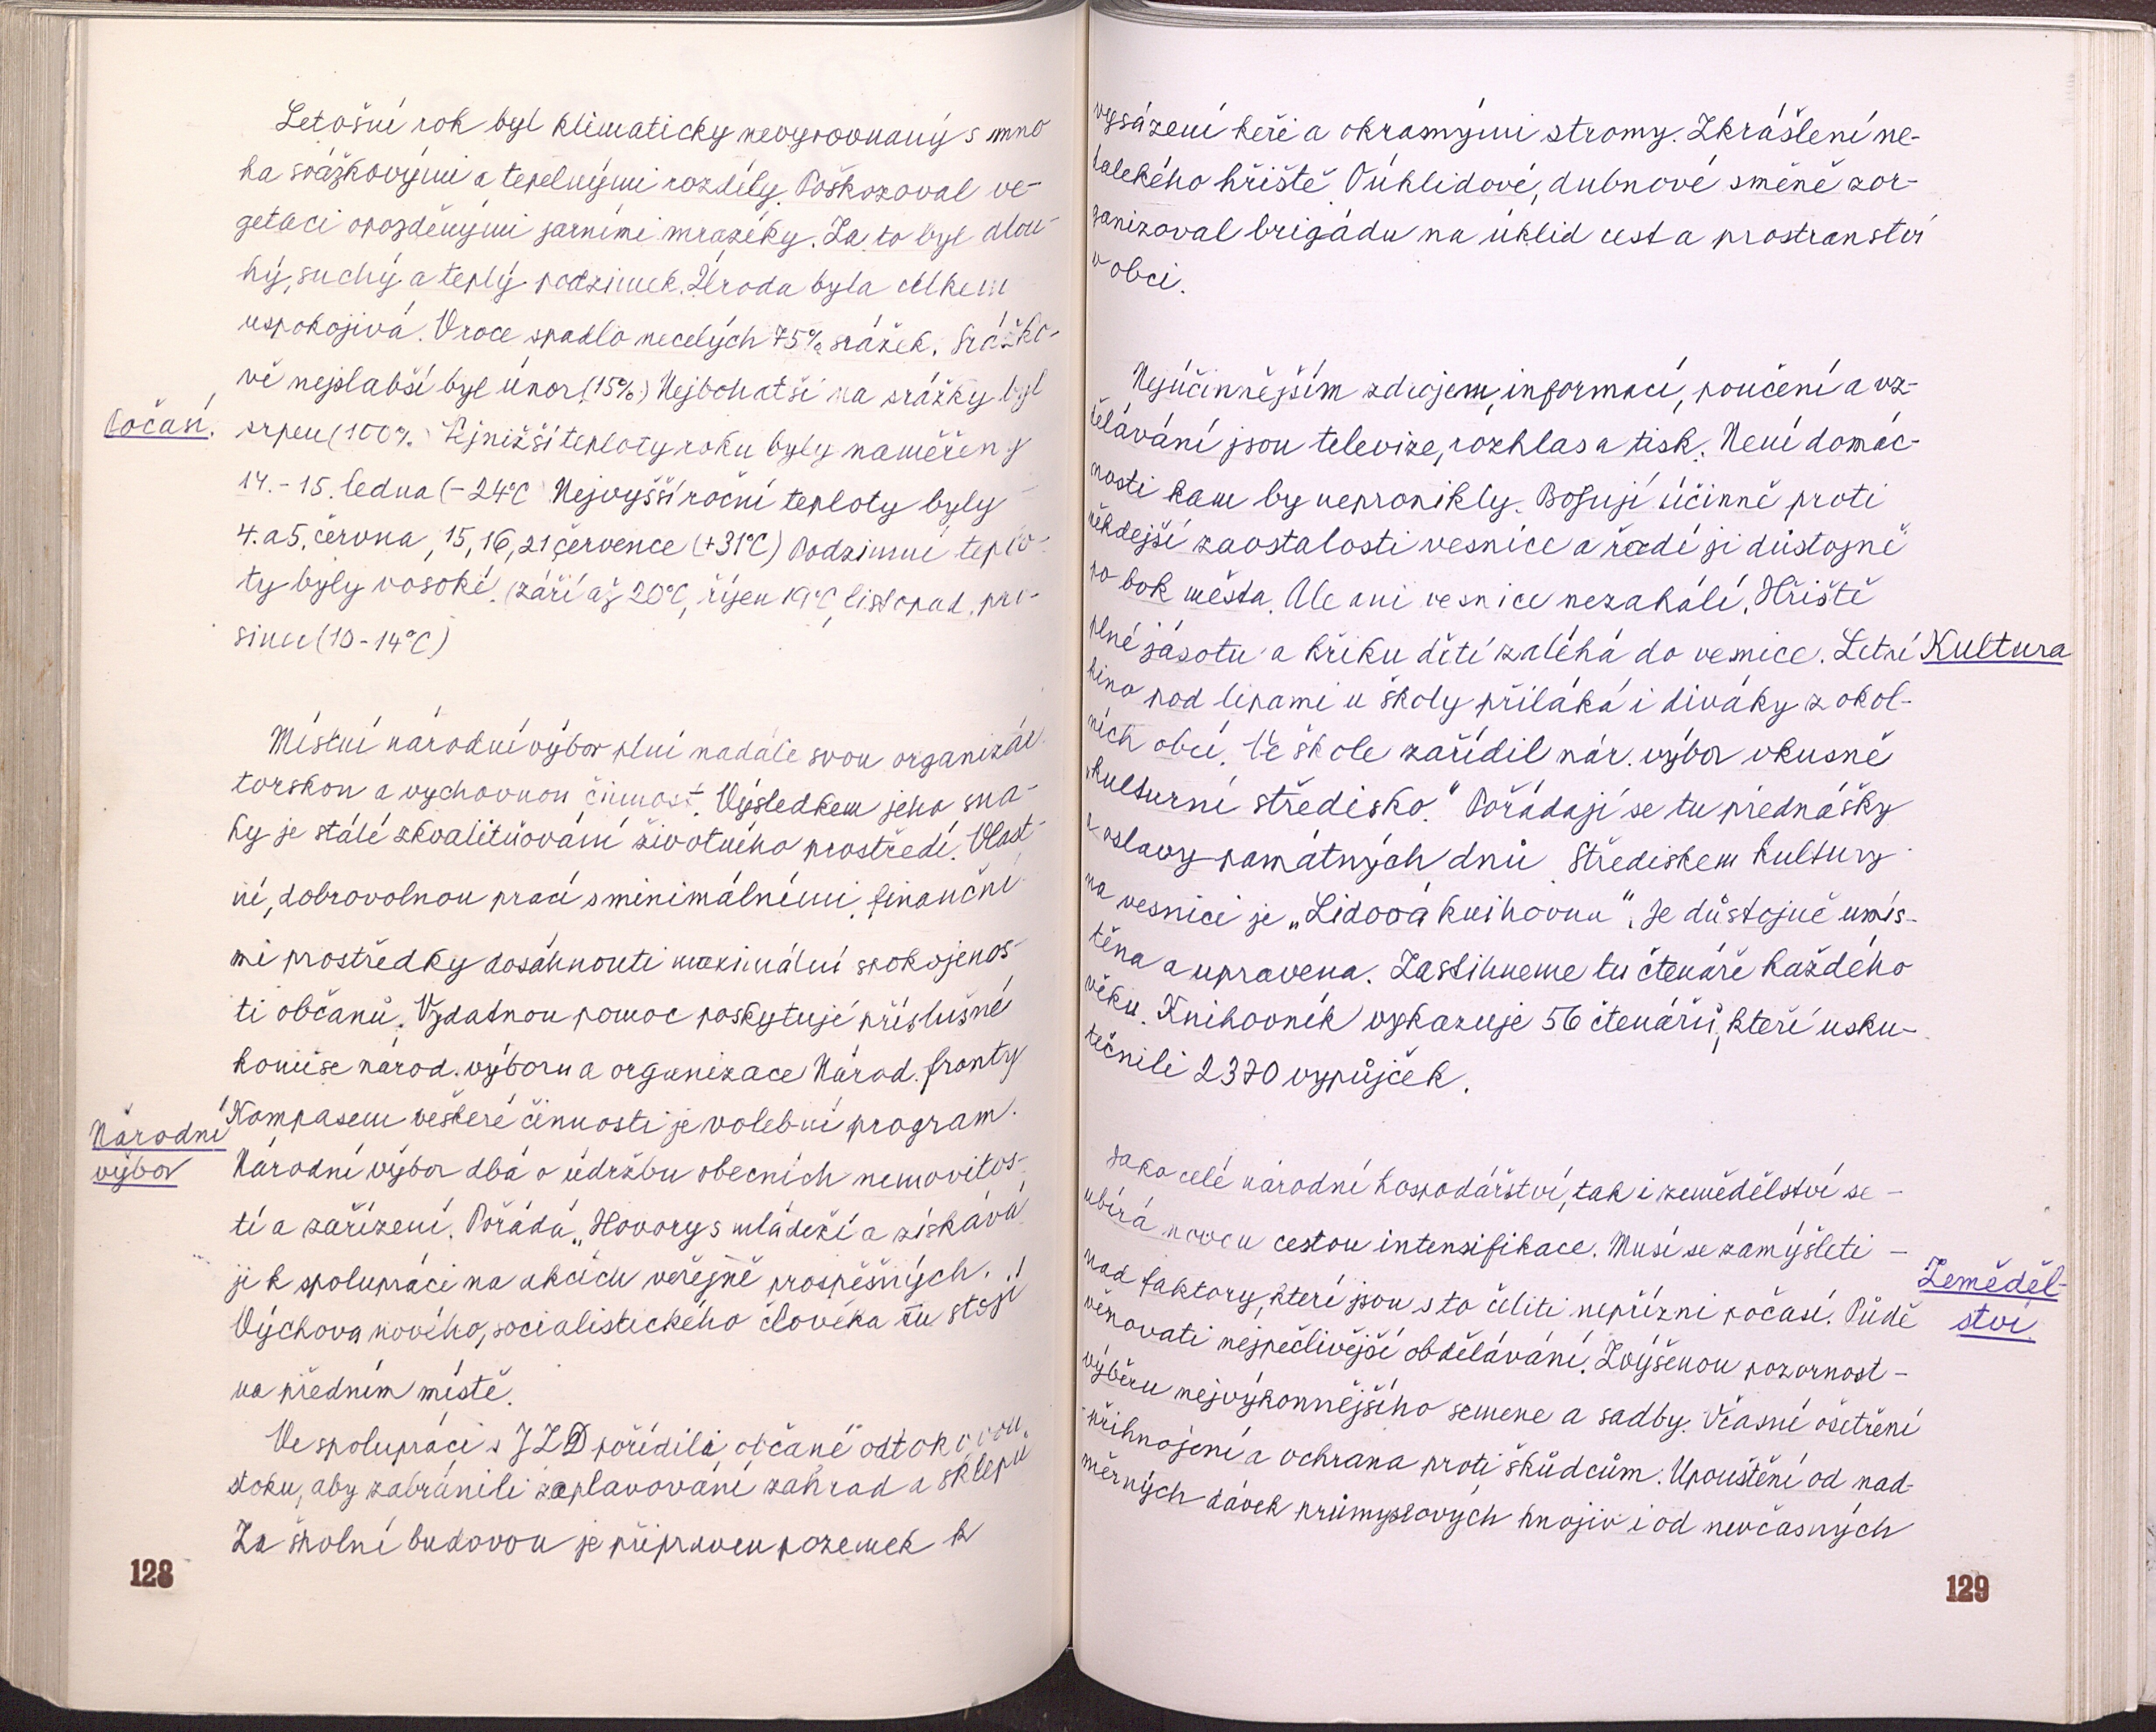 Letošní rok byl klimaticky nevyrovnaný s mno
ha srážkovými a tepelnými rozdíly. Poškozoval ve-
getaci opozděnými jarními mrazíky. Za to byl dlou-
hý, suchý a teplý podzimek. Úroda byla celkem
uspokojivá. V roce spadlo necelých 75% srážek. Srážko-
vě nejslabší byl únor (15%) Nejbohatší na srážky byl
Počasí.
srpen (100% Nejnižší teploty roku byly naměřeny
14.-15. ledna (-24°C Nejvyšší roční teploty byly
4. a 5. června, 15, 16, 21 července (+31°C) Podzimní teplo-
ty byly vosoké. (září až 20°C, říjen 19°C, listopad, pro-
sinec (10-14°C)
Místní národní výbor plní nadále svou organizá
torskou a vychovnou činnost. Výsledkem jeho sna-
hy je stálé zkvalitňování životního prostředí. Vlast-
ní, dobrovolnou prací s minimálními, finanční-
mi prostředky dosáhnouti maximální spokojenos-
ti občanů. Vydatnou pomoc poskytují příslušné
komise národ. výboru a organizace Národ. fronty
Kompasem veškeré činnosti je volební program.
Národní
výbor
Národní výbor dbá o údržbu obecních nemovitos-
tí a zařízení. Pořádá „Hovory s mládeží a získává
ji k spolupráci na akcích veřejně prospěšných.
Výchova nového, socialistického člověka tu stojí
na předním místě.
Ve spolupráci s JZD pořídili občané odtokovou
stoku, aby zabránili zaplavování zahrad a sklepů
Za školní budovou je připraven pozemek k
128
vysázení keři a okrasnými stromy. Zkrášlení ne-
dalekého hřiště. Púklidové, dubnové směně zor-
ganizoval brigádu na úklid cest a prostranství
v obci.
Nejúčinnějším zdrojem, informací, poučení a vz-
dělávání jsou televize, rozhlas a tisk. Není domác-
nosti kam by nepronikly. Bojují účinně proti
někdejší zaostalosti vesnice a řadí ji důstojně
po bok města. Ale ani vesnice nezahálí. Hřiště
plné jásotu a křiku dětí zaléhá do vesnice. Letní
Kultura
kino pod lipami u školy přiláká i diváky z okol-
ních obcí. Ve škole zařídil nár. výbor vkusné
„kulturní středisko." Pořádají se tu přednášky
a oslavy památných dnů. Střediskem kultury
na vesnici je „Lidová knihovna". Je důstojně umís-
těna a upravena. Zastihneme tu čtenáře každého
věku. Knihovník vykazuje 56 čtenářů, kteří usku-
tečnili 2370 vypůjček.
Jako celé národní hospodářství, tak i zemědělství se -
ubírá novou cestou intensifikace. Musí se zamýšleti -
nad faktory, kteří jsou s to čeliti nepřízni počasí. Půdě
Zeměděl-
ství
věnovati nejpečlivější obdělávání. Zvýšenou pozornost -
výběru nejvýkonnějšího semene a sadby. Včasné ošetření
přihnojení a ochrana proti škůdcům. Upouštění od nad-
měrných dávek průmyslových hnojiv i od nevčasných
129